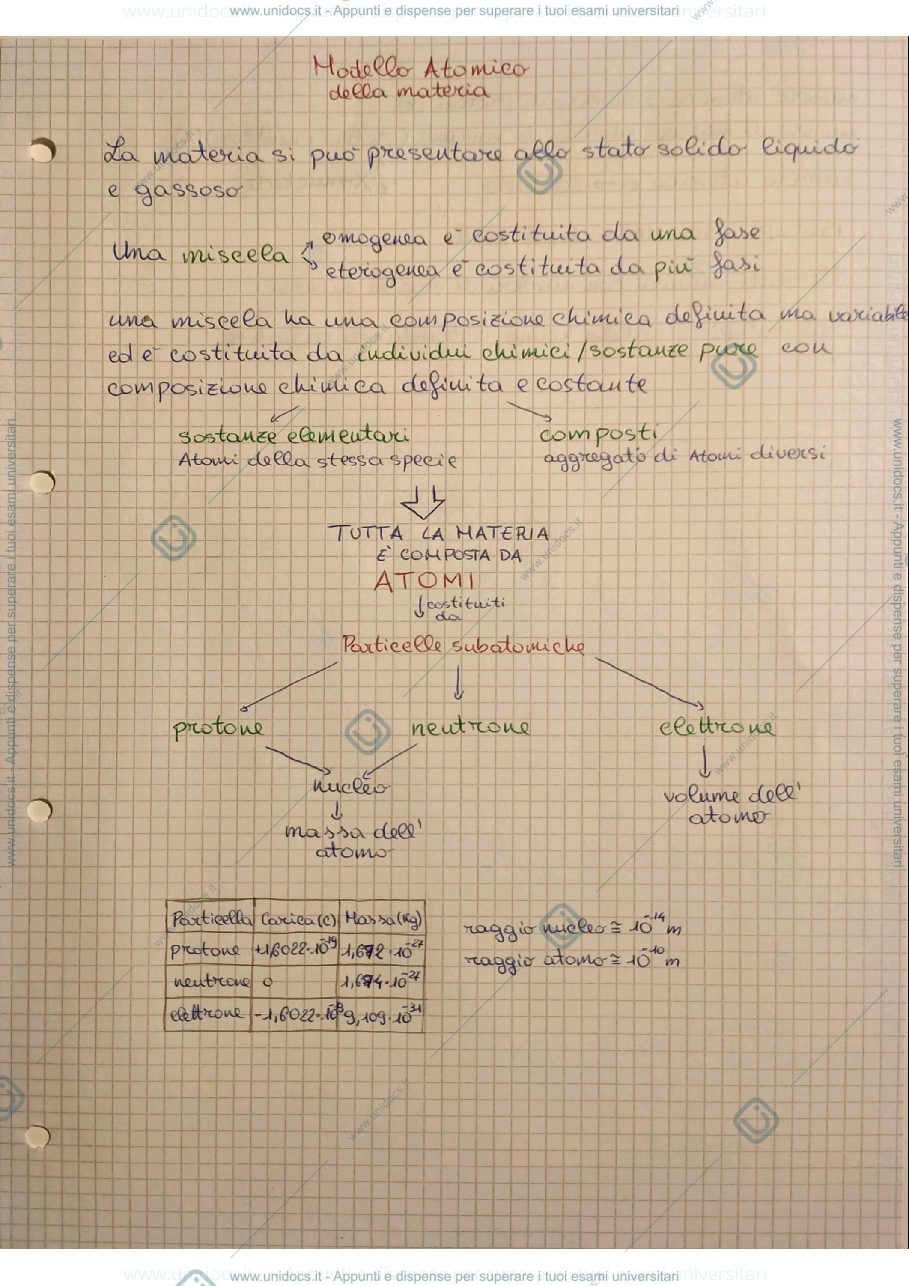 www.unidocs.it - Appunti e dispense per superare i tuoi esami universitari
Modello Atomico
della materia
La materia si può presentare allo stato solido liquido
e gassoso
Una miscela
omogenea è costituita da una fase
eterogenea è costituita da più fasi
una miscela ha una composizione chimica definita ma variabile
ed è costituita da individui chimici/sostanze pure con
composizione chimica definita e costante
sostanze elementari composti
Atomi della stessa specie aggregato di Atomi diversi
TUTTA LA MATERIA
È COMPOSTA DA
ATOMI
costituiti
da
Particelle subatomiche
protone neutrone elettrone
nucleo
volume dell'
atomo
massa dell'
atomo
Particella Carica (C) Massa (Kg)
protone +1,6022·10⁻¹⁹ 1,672·10⁻²⁷
neutrone 0 1,674·10⁻²⁷
elettrone -1,6022·10⁻¹⁹ 9,109·10⁻³¹
raggio nucleo ≅ 10⁻¹⁴ m
raggio atomo ≅ 10⁻¹⁰ m
www.unidocs.it - Appunti e dispense per superare i tuoi esami universitari
www.unidocs.it - Appunti e dispense per superare i tuoi esami universitari
www.unidocs.it - Appunti e dispense per superare i tuoi esami universitari